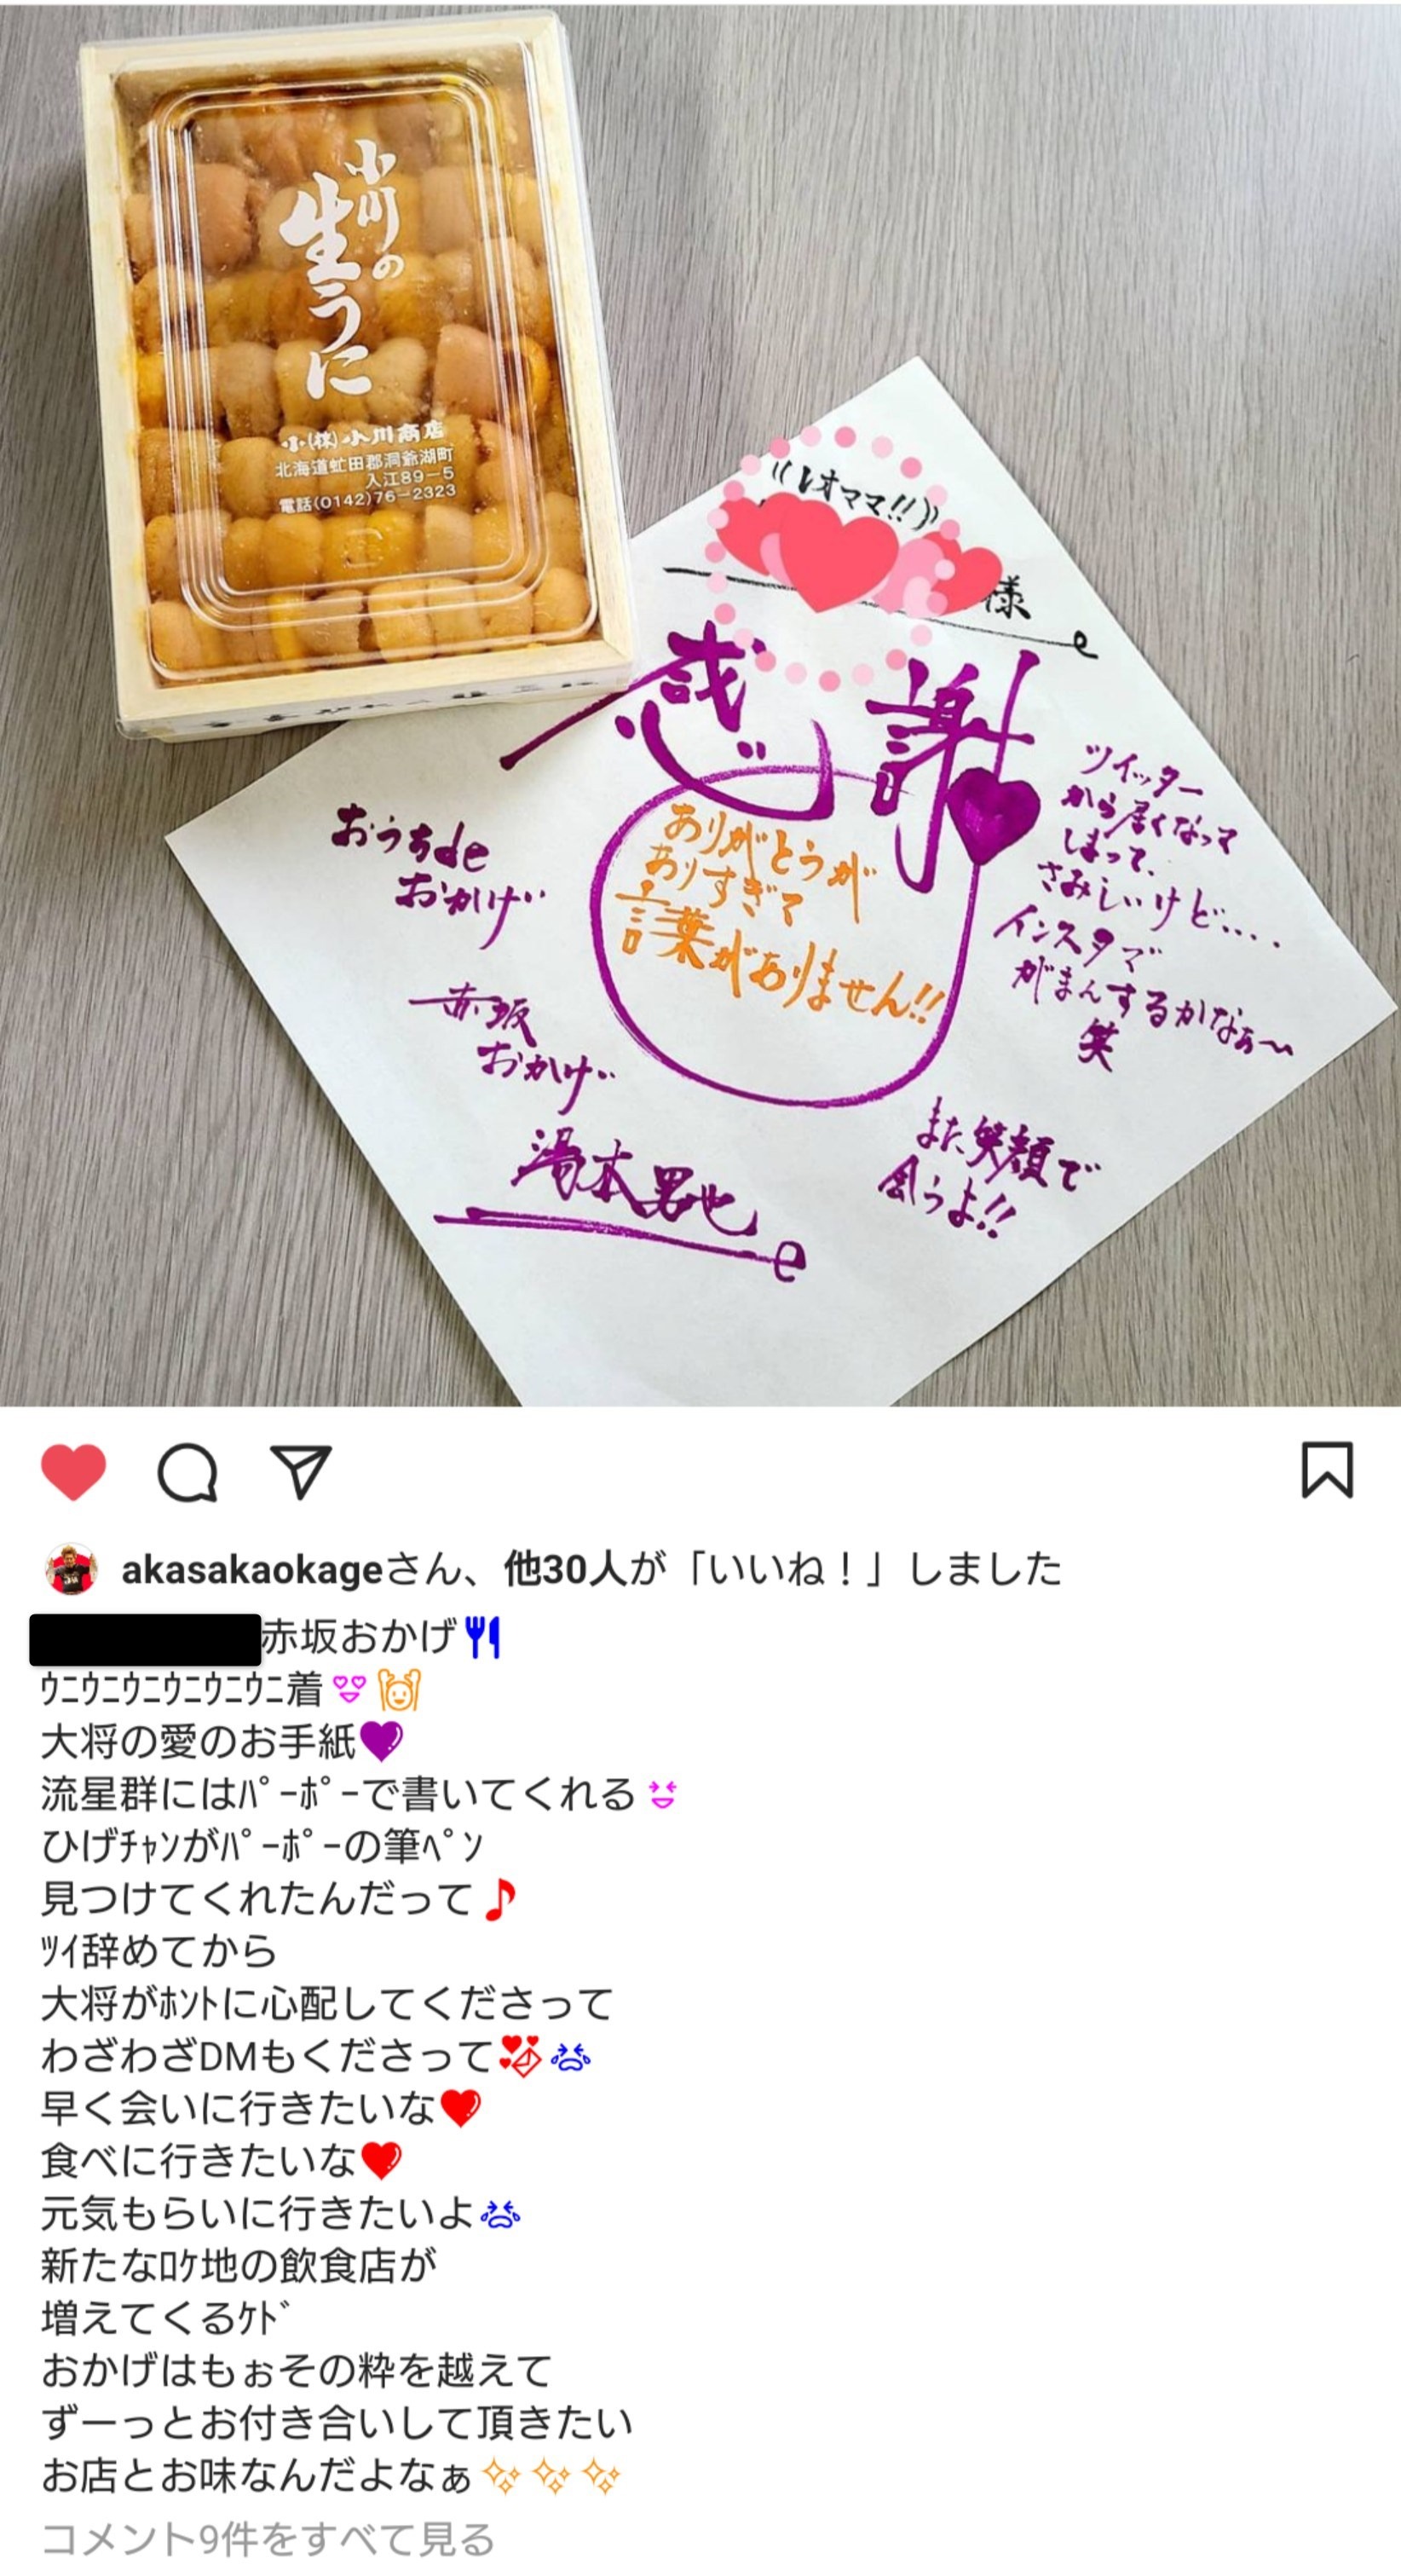 小川の
生うに
(株)小川商店
北海道虻田郡洞爺湖町
入江89-5
電話(0142)76-2323
((レオママ!!))
様
感謝
ありがとうが
ありすぎて
言葉がありません!!
ツイッター
から居なくなって
しまって、
さみしいけど....
インスタで
がまんするかなぁ〜
笑
また笑顔で
会うよ!!
おうちde
おかげ
赤坂
おかげ
湯本男也
akasakaokageさん、他30人が「いいね！」しました
赤坂おかげ🍴
ｳﾆｳﾆｳﾆｳﾆｳﾆｳﾆ着😍🙌
大将の愛のお手紙💜
流星群にはﾊﾟｰﾎﾟｰで書いてくれる😆
ひげﾁｬﾝがﾊﾟｰﾎﾟｰの筆ﾍﾟﾝ
見つけてくれたんだって♪
ﾂｲ辞めてから
大将がﾎﾝﾄに心配してくださって
わざわざDMもくださって💌😭
早く会いに行きたいな❤
食べに行きたいな❤
元気もらいに行きたいよ😭
新たなﾛｹ地の飲食店が
増えてくるｹﾄﾞ
おかげはもぉその粋を越えて
ずーっとお付き合いして頂きたい
お店とお味なんだよなぁ✨✨✨
コメント9件をすべて見る